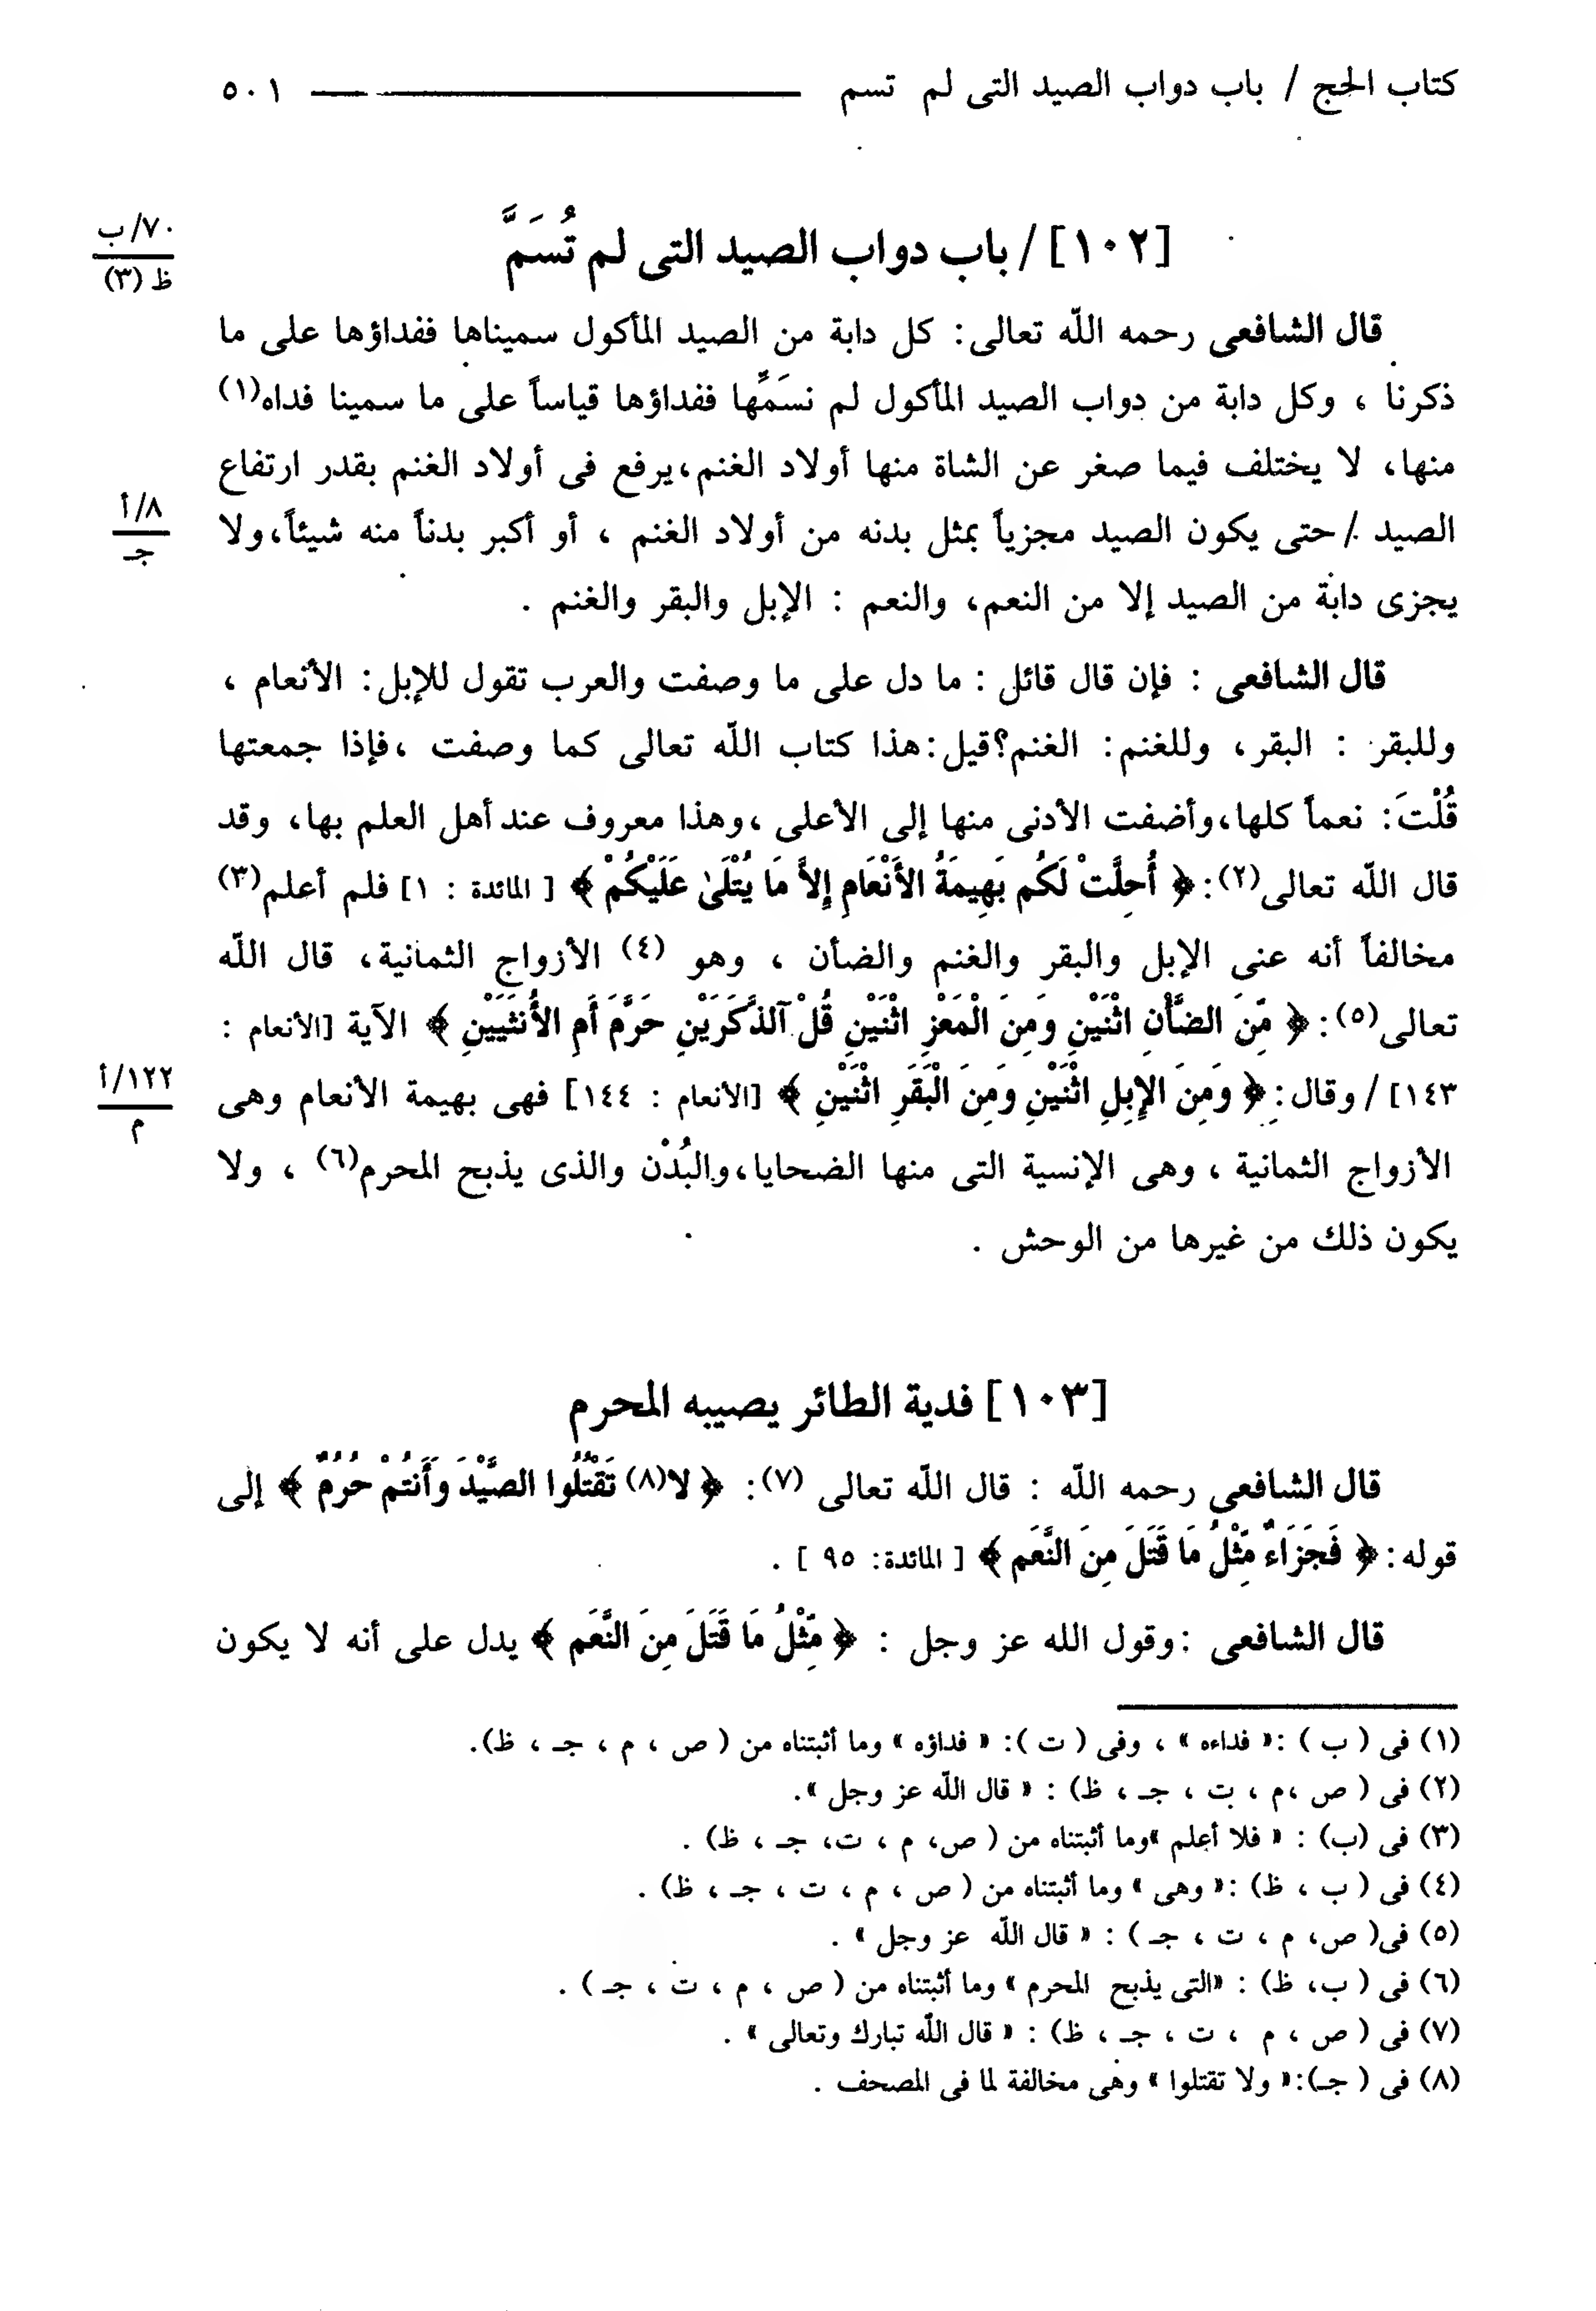 كتاب الحج / باب دواب الصيد التى لم تسم ٥٠١
٧٠/ ب
ظ (٣)
[١٠٢] / باب دواب الصيد التى لم تُسَمَّ
قال الشافعى رحمه اللّه تعالى: كل دابة من الصيد المأكول سميناها ففداؤها على ما
ذكرنا ، وكل دابة من دواب الصيد المأكول لم نسَمِّها ففداؤها قياساً على ما سمينا فداه(١)
منها، لا يختلف فيما صغر عن الشاة منها أولاد الغنم،يرفع فى أولاد الغنم بقدر ارتفاع
٨/ أ
جـ
الصيد / حتى يكون الصيد مجزياً بمثل بدنه من أولاد الغنم ، أو أكبر بدناً منه شيئاً،ولا
يجزى دابة من الصيد إلا من النعم، والنعم : الإبل والبقر والغنم .
قال الشافعى : فإن قال قائل : ما دل على ما وصفت والعرب تقول للإبل: الأنعام ،
وللبقر : البقر، وللغنم: الغنم؟قيل:هذا كتاب اللّه تعالى كما وصفت ،فإذا جمعتها
قُلْتَ: نعماً كلها،وأضفت الأدنى منها إلى الأعلى ،وهذا معروف عند أهل العلم بها، وقد
قال اللّه تعالى(٢):﴿ أُحِلَّتْ لَكُم بَهِيمَةُ الأَنْعَامِ إِلاَّ مَا يُتْلَىٰ عَلَيْكُمْ ﴾ [ المائدة : ١] فلم أعلم(٣)
مخالفاً أنه عنى الإبل والبقر والغنم والضأن ، وهو (٤) الأزواج الثمانية، قال اللّه
تعالى(٥):﴿ مِّنَ الضَّأْنِ اثْنَيْنِ وَمِنَ الْمَعْزِ اثْنَيْنِ قُلْ آلذَّكَرَيْنِ حَرَّمَ أَمِ الأُنثَيَيْنِ ﴾ الآية [الأنعام :
١٢٢/ أ
م
١٤٣] / وقال:﴿ وَمِنَ الإِبِلِ اثْنَيْنِ وَمِنَ الْبَقَرِ اثْنَيْنِ ﴾ [الأنعام : ١٤٤] فهى بهيمة الأنعام وهى
الأزواج الثمانية ، وهى الإنسية التى منها الضحايا،والبُدْن والذى يذبح المحرم(٦) ، ولا
يكون ذلك من غيرها من الوحش .
[١٠٣] فدية الطائر يصيبه المحرم
قال الشافعى رحمه اللّه : قال اللّه تعالى (٧): ﴿ لا(٨) تَقْتُلُوا الصَّيْدَ وَأَنتُمْ حُرُمٌ ﴾ إلى
قوله:﴿ فَجَزَاءٌ مِّثْلُ مَا قَتَلَ مِنَ النَّعَمِ ﴾ [ المائدة: ٩٥ ] .
قال الشافعى :وقول الله عز وجل : ﴿ مِّثْلُ مَا قَتَلَ مِنَ النَّعَمِ ﴾ يدل على أنه لا يكون
(١) فى ( ب ) :« فداءه » ، وفى ( ت ): « فداؤه » وما أثبتناه من ( ص ، م ، جـ ، ظ).
(٢) فى ( ص ،م ، ت ، جـ ، ظ) : « قال اللّه عز وجل ».
(٣) فى (ب) : « فلا أعلم »وما أثبتناه من ( ص، م ، ت، جـ ، ظ) .
(٤) فى ( ب ، ظ) :« وهى » وما أثبتناه من ( ص ، م ، ت ، جـ ، ظ) .
(٥) فى( ص، م ، ت ، جـ ) : « قال اللّه عز وجل » .
(٦) فى ( ب، ظ) : «التى يذبح المحرم » وما أثبتناه من ( ص ، م ، ت ، جـ ) .
(٧) فى ( ص ، م ، ت ، جـ ، ظ) : « قال اللّه تبارك وتعالى » .
(٨) فى ( جـ):« ولا تقتلوا » وهى مخالفة لما فى المصحف .